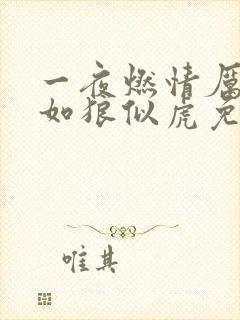 一夜燃情厲
如狼似虎免
唯其